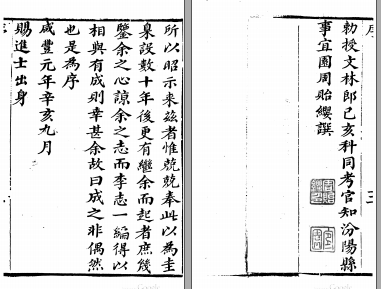 所以昭示来茲者惟兢兢奉此以為圭
臬設數十年後更有繼余而起者庶幾
鑒余之心諒余之志而李志一編得以
相與有成則幸甚余故曰成之非偶然
也是為序
咸豐元年辛亥九月
賜進士出身
勅授文林郎己亥科同考官知汾陽縣
事宜園周貽纓撰
三